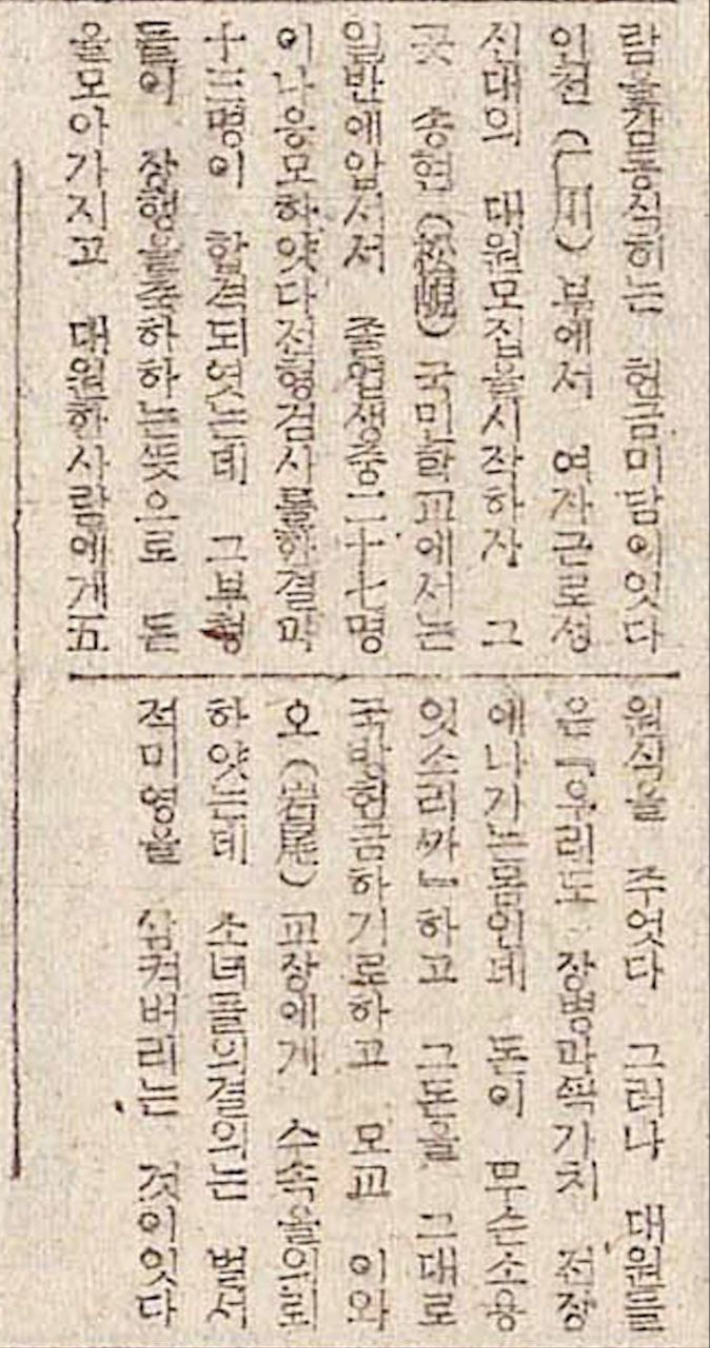 람을감동식히는 헌금미담이잇다
인천(仁川)부에서 여자근로정
신대의 대원모집을시작하자 그
곳 송현(松峴)국민학교에서는
일반에압서서 졸업생중二十七명
이나응모하얏다전형검사를한결과
十三명이 합격되엿는데 그부형
들이 장행을축하하는뜻으로 돈
을모아가지고 대원한사람에게五
원식을 주엇다 그러나 대원들
은『우리도 장병과똑가치 전장
에나가는몸인데 돈이 무슨소용
잇소리까』하고 그돈을 그대로
국방헌금하기로하고 모교 이와
오(岩尾)교장에게 수속을의뢰
하얏는데 소녀들의결의는 벌서
적미영을 삼켜버리는 것이잇다